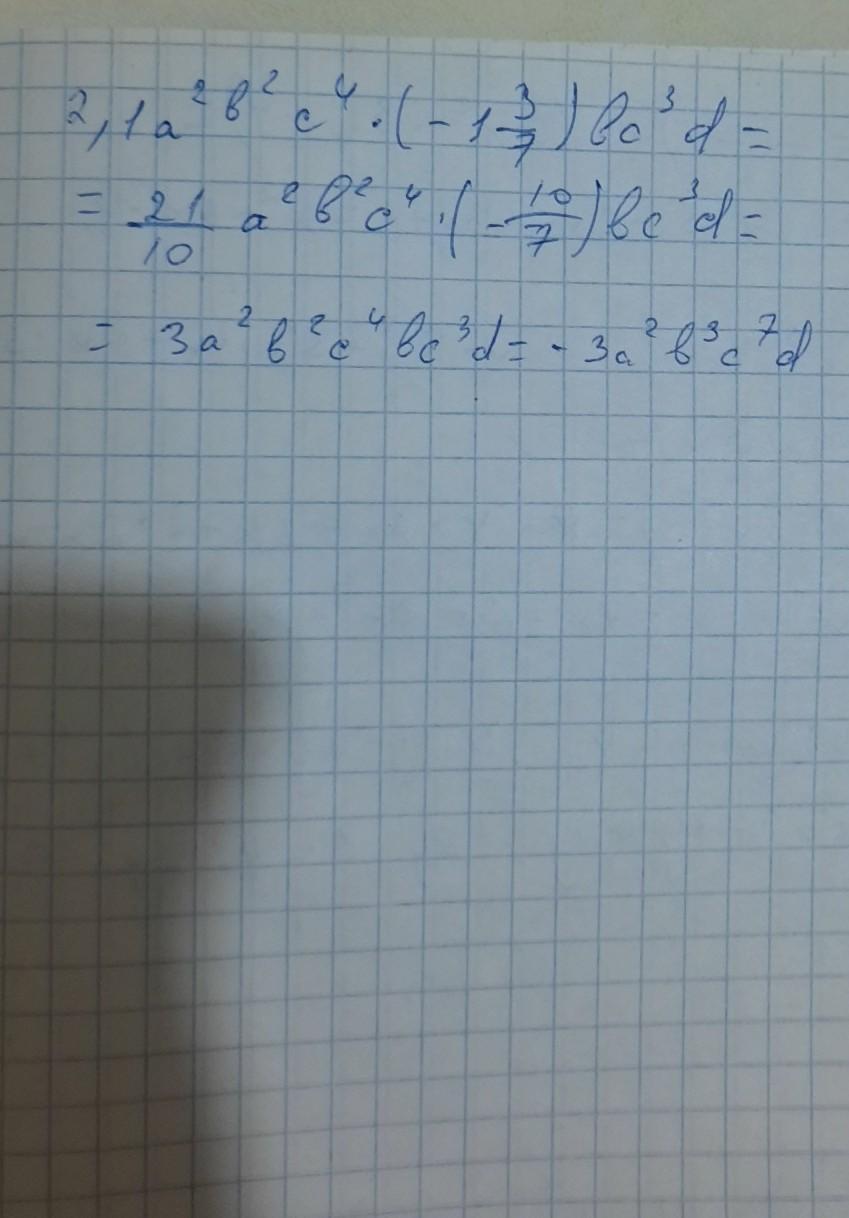 2,1a²b²c⁴·(-1 3/7)bc³d=
= 21/10 a²b²c⁴·(-10/7)bc³d=
= 3a²b²c⁴bc³d= -3a²b³c⁷d